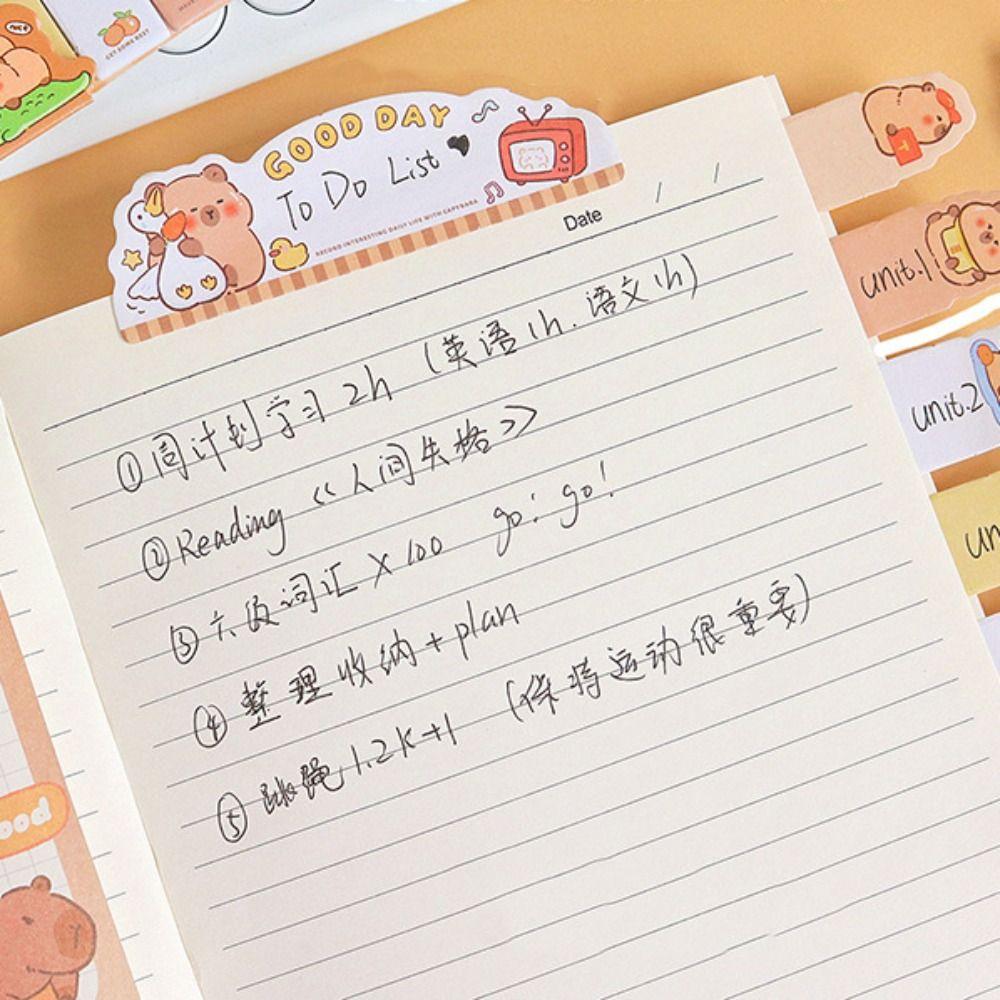 nice
GET SOME REST
GOOD DAY
To Do List
RECORD INTERESTING DAILY LIFE WITH CAPYBARA
Date / /
①周计划学习 2h (英语1h. 语文1h)
②Reading 《人间失格》
③六级词汇×100 go! go!
④整理收纳+plan
⑤跳绳1.2K+1 (保持运动很重要)
unit.1
unit.2
un
ood